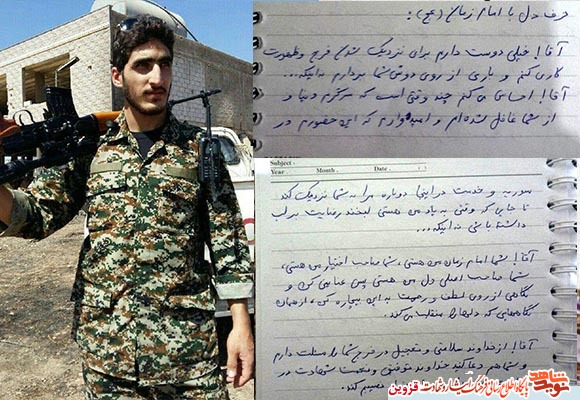 حرف دل با امام زمان (عج):
آقا! خیلی دوست دارم برای نزدیک شدن فرج و ظهورت
کاری کنم و باری از روی دوش شما بردارم نه اینکه...
آقا! احساس می کنم چند وقتی است که سرگرم دنیا و
از شما غافل شده ام و امیدوارم که این حضورم در
Subject :
Year . Month . Date . ( )
سوریه و خدمت در اینجا دوباره مرا به شما نزدیک کند
تا جایی که وقتی به یاد من هستی لبخند رضایت بر لب
داشته باشی نه اینکه...
آقا! شما امام زمان من هستی، شما صاحب اختیار من هستی،
شما صاحب اصلی دل من هستی پس عنایتی کن و
نگاهی از روی لطف و رحمت به این بیچاره کن، از همان
نگاههایی که دلها را منقلب می کند.
آقا! از خداوند سلامتی و تعجیل در فرج شما را مسئلت دارم
و شما هم دعا کنید خداوند توفیق و نعمت شهادت در
نصیبم کند.
نوید شاهد
پایگاه اطلاع رسانی فرهنگ ایثار و شهادت قزوین